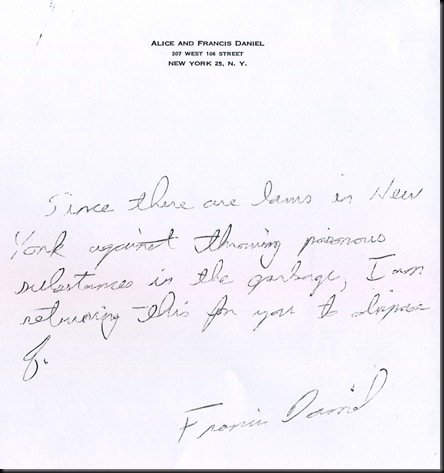 ALICE AND FRANCIS DANIEL
207 WEST 106 STREET
NEW YORK 25, N. Y.
Since there are laws in New
York against throwing poisonous
substances in the garbage, I am
returning this for you to dispose
of.
Francis Daniel